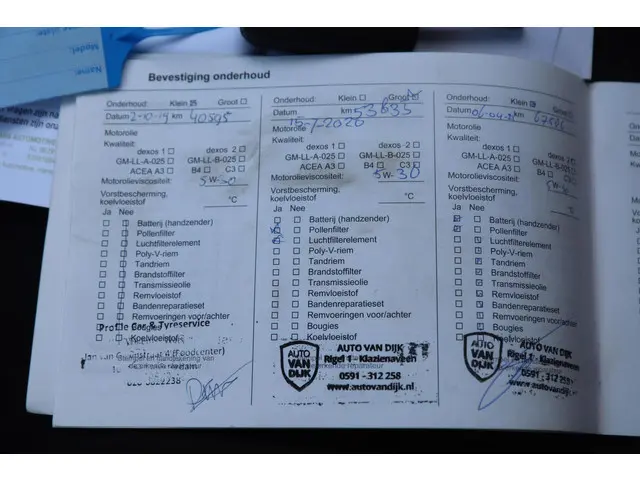 Bevestiging onderhoud
Onderhoud: Klein Groot
Datum 2-10-19 km 40595
Motorolie
Kwaliteit:
dexos 1 dexos 2
GM-LL-A-025 GM-LL-B-025
ACEA A3 B4 C3
Motorolieviscositeit:
5W-30
Vorstbescherming,
koelvloeistof °C
Ja Nee
Batterij (handzender)
Pollenfilter
Luchtfilterelement
Poly-V-riem
Tandriem
Brandstoffilter
Transmissieolie
Remvloeistof
Bandenreparatieset
Remvoeringen voor/achter
Bougies
Koelvloeistof
Profile Car & Tyreservice
Onderhoud: Klein Groot
Datum 15-7-2020 km 53835
Motorolie
Kwaliteit:
dexos 1 dexos 2
GM-LL-A-025 GM-LL-B-025
ACEA A3 B4 C3
Motorolieviscositeit: 5W-30
Vorstbescherming,
koelvloeistof °C
Ja Nee
Batterij (handzender)
Pollenfilter
Luchtfilterelement
Poly-V-riem
Tandriem
Brandstoffilter
Transmissieolie
Remvloeistof
Bandenreparatieset
Remvoeringen voor/achter
Bougies
Koelvloeistof
AUTO VAN DIJK
AUTO VAN DIJK
Rigel 1 - Klazienaveen
0591 - 312 258
www.autovandijk.nl
Onderhoud: Klein Groot
Datum km
Motorolie
Kwaliteit:
dexos 1 dexos 2
GM-LL-A-025 GM-LL-B-025
ACEA A3 B4
Motorolieviscositeit:
5W-30
Vorstbescherming,
koelvloeistof °C
Ja Nee
Batterij (handzender)
Pollenfilter
Luchtfilterelement
Poly-V-riem
Tandriem
Brandstoffilter
Transmissieolie
Remvloeistof
Bandenreparatieset
Remvoeringen voor/achter
Bougies
Koelvloeistof
AUTO VAN DIJK
AUTO VAN DIJK
Rigel 1 - Klazienaveen
0591 - 312 258
www.autovandijk.nl
Model:
Name: